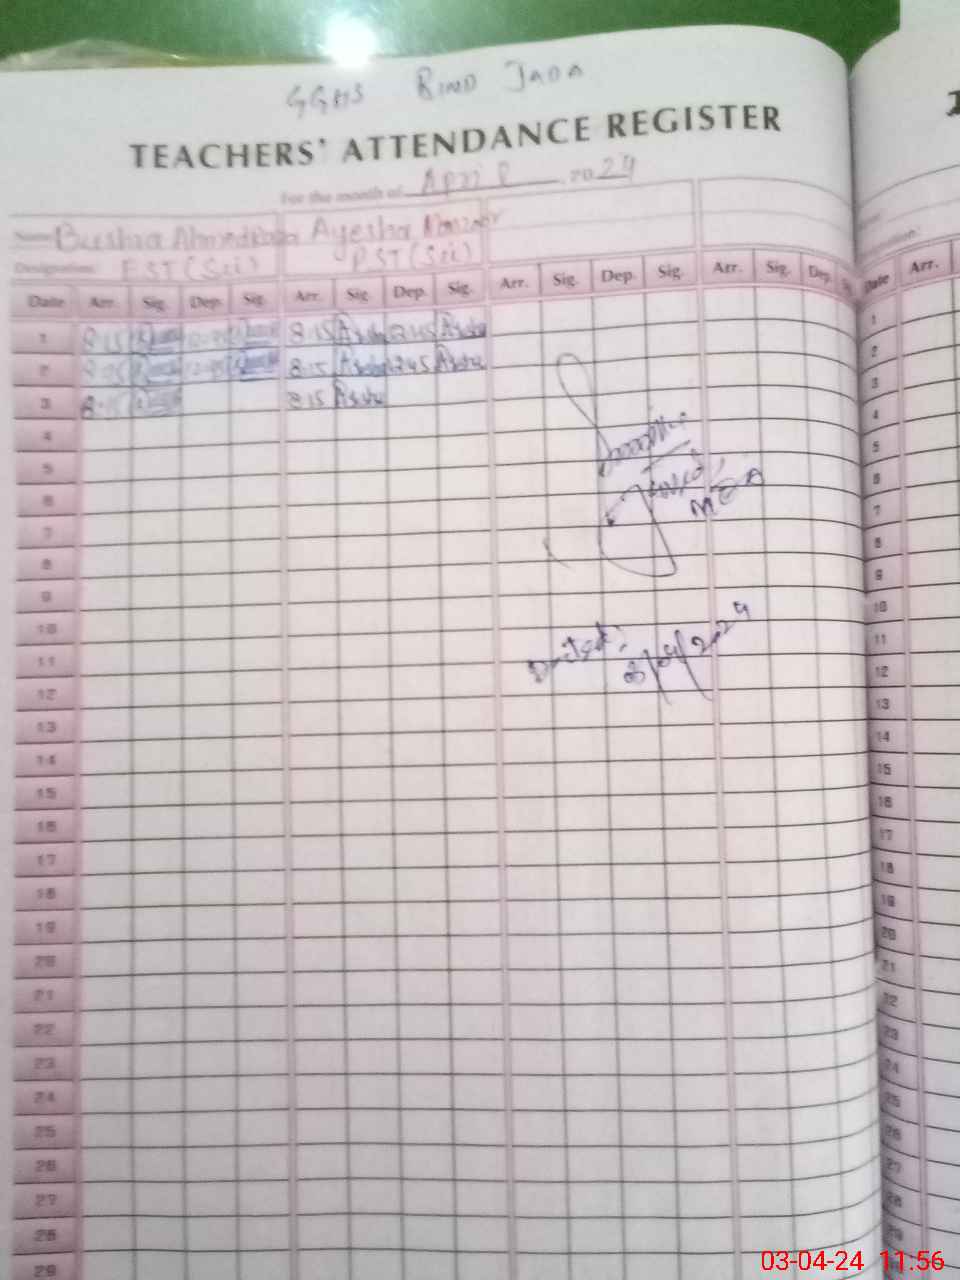 GGHS BIND JADA
TEACHERS' ATTENDANCE REGISTER
For the month of April, 2024
Name Bushra Ahmed Ayesha Manzoor
Designation: EST (Sci) PST (Sci)
Date Arr. Sig. Dep. Sig. Arr. Sig. Dep. Sig. Arr. Sig. Dep. Sig. Arr. Sig. Dep. Date Arr.
1 8:15 8:15 Aysha 12:45 Aysha 1
2 8:15 Aysha 12:45 Aysha 2
3 8:15 8:15 Aysha 3
4 4
5 5
6 MEA 6
7 7
8 8
9 9
10 10
11 Dated: 3/04/2024 11
12 12
13 13
14 14
15 15
16 16
17 17
18 18
19 19
20 20
21 21
22 22
23 23
24 24
25 25
26 26
27 27
28 28
29 29
03-04-24 11:56